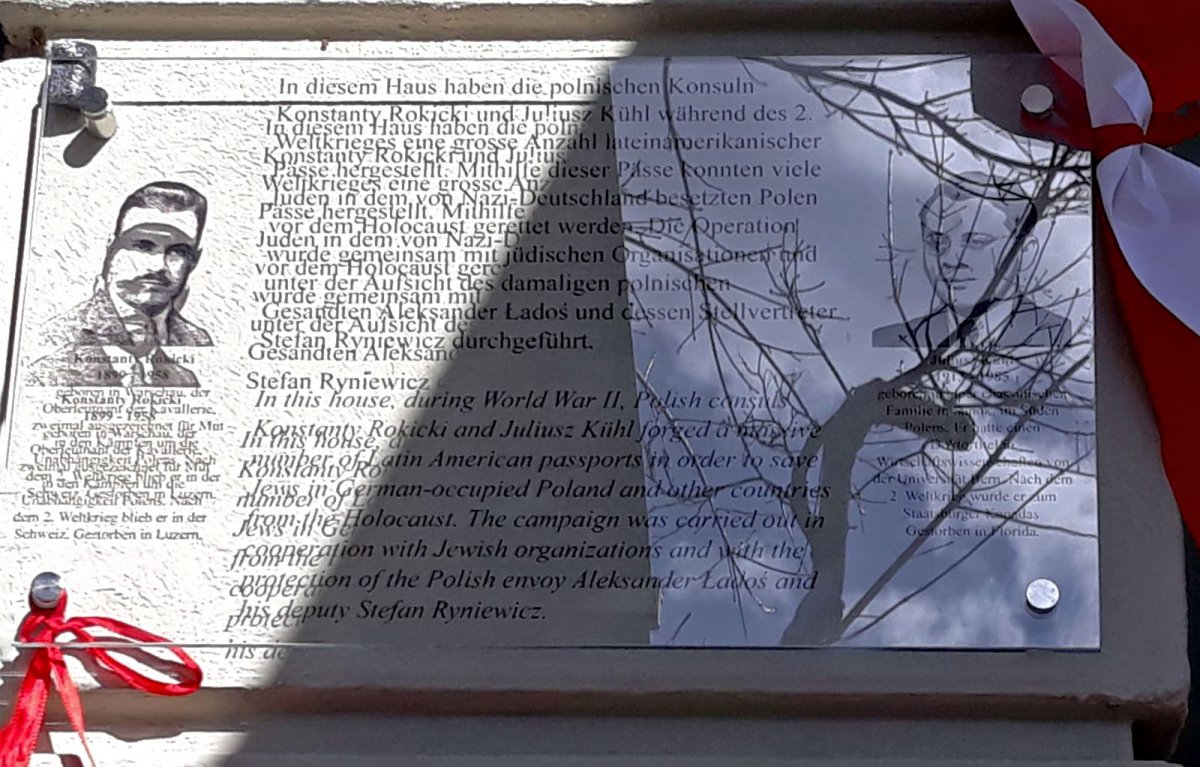 In diesem Haus haben die polnischen Konsuln
Konstanty Rokicki und Juliusz Kühl während des 2.
Weltkrieges eine grosse Anzahl lateinamerikanischer
Pässe hergestellt. Mithilfe dieser Pässe konnten viele
Juden in dem von Nazi-Deutschland besetzten Polen
vor dem Holocaust gerettet werden. Die Operation
wurde gemeinsam mit jüdischen Organisationen und
unter der Aufsicht des damaligen polnischen
Gesandten Aleksander Ładoś und dessen Stellvertreter
Stefan Ryniewicz durchgeführt.
In this house, during World War II, Polish consuls
Konstanty Rokicki and Juliusz Kühl forged a massive
number of Latin American passports in order to save
Jews in German-occupied Poland and other countries
from the Holocaust. The campaign was carried out in
cooperation with Jewish organizations and with the
protection of the Polish envoy Aleksander Ładoś and
his deputy Stefan Ryniewicz.
Konstanty Rokicki
1899 - 1958
geboren in Warschau, der
Oberleutnant der Kavallerie,
zweimal ausgezeichnet für Mut
in den Kämpfen um die
Unabhängigkeit Polens. Nach
dem 2. Weltkrieg blieb er in der
Schweiz. Gestorben in Luzern.
geboren in der chassidischen
Familie in Sanok, im Süden
Polens. Er hatte einen
Doktortitel in
Wirtschaftswissenschaften von
der Universität Bern. Nach dem
2. Weltkrieg wurde er zum
Staatsbürger Kanadas.
Gestorben in Florida.